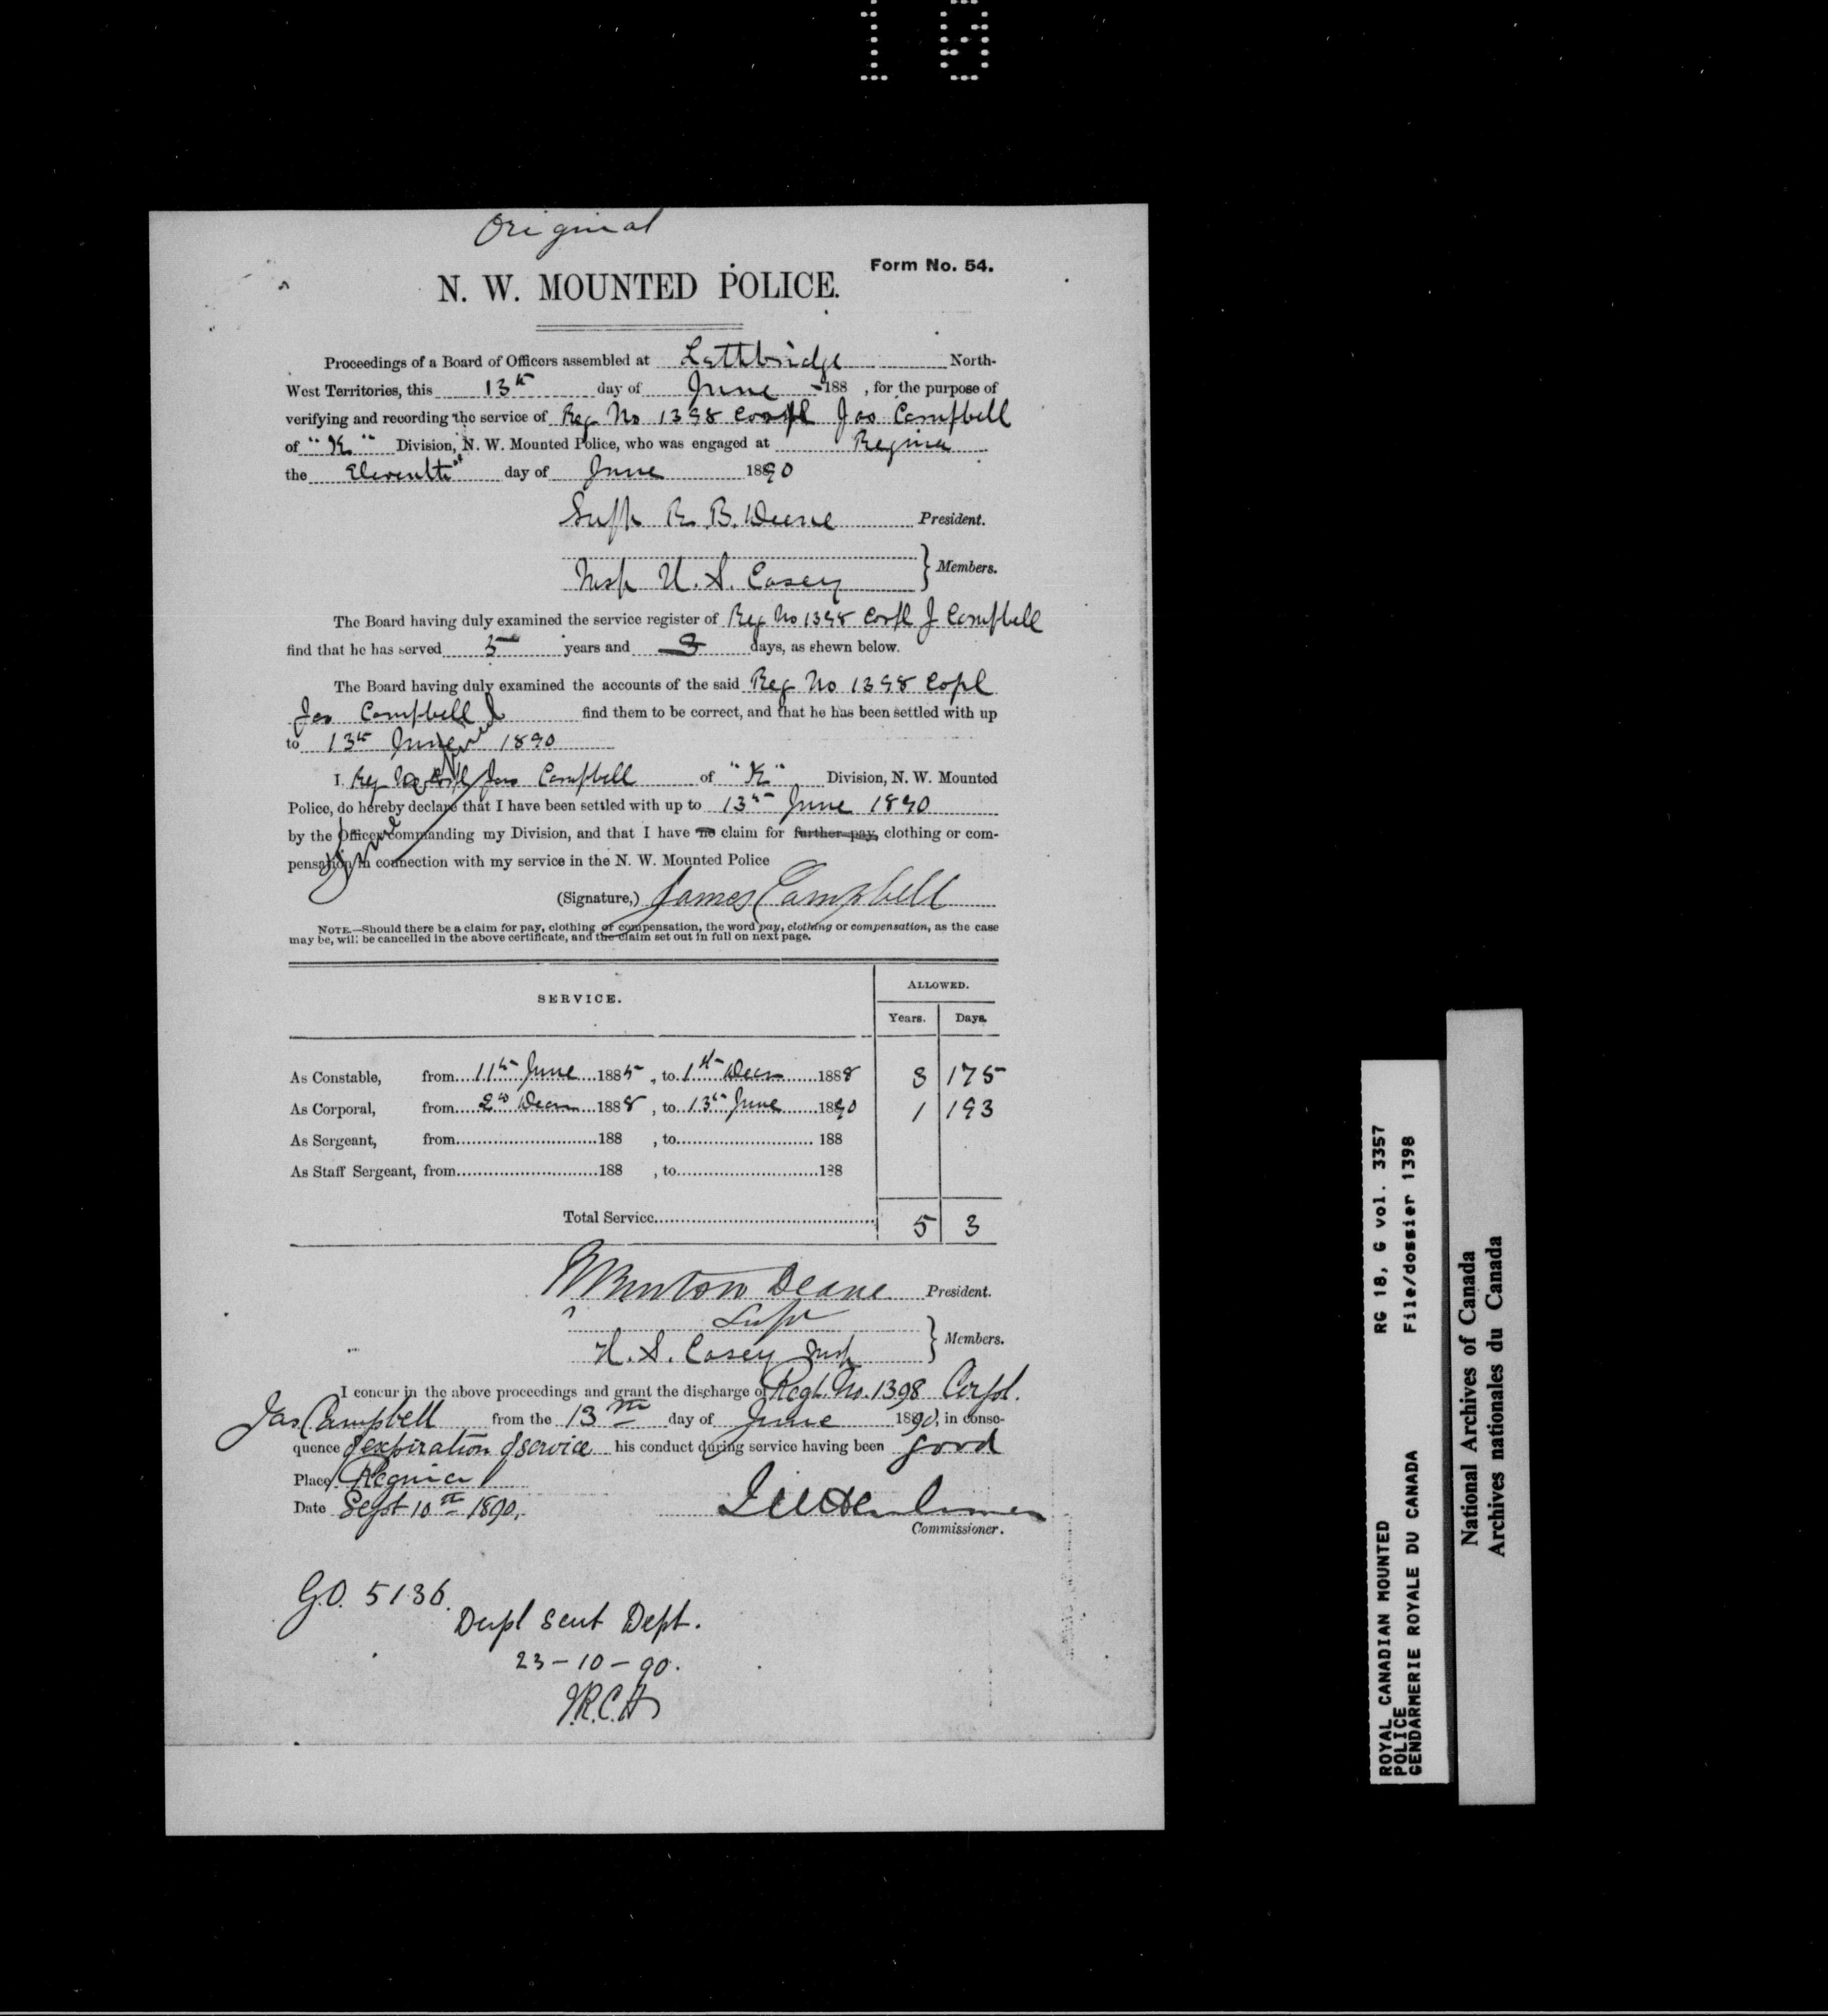 Original
Form No. 54.
N. W. MOUNTED POLICE.
Proceedings of a Board of Officers assembled at Lethbridge North-
West Territories, this 13th day of June 188 , for the purpose of
verifying and recording the service of Reg No 1398 Corpl Jas Campbell
of "K" Division, N. W. Mounted Police, who was engaged at Regina
the Eleventh day of June 1890
Supt R. B. Deane President.
Insp H. S. Casey Members.
The Board having duly examined the service register of Reg No 1398 Corpl J Campbell
find that he has served 5 years and 3 days, as shewn below.
The Board having duly examined the accounts of the said Reg No 1398 Copl
Jas Campbell find them to be correct, and that he has been settled with up
to 13th June 1890
I. Reg No Corpl Jas Campbell of "K" Division, N. W. Mounted
Police, do hereby declare that I have been settled with up to 13th June 1890
by the Officer commanding my Division, and that I have no claim for further pay, clothing or com-
pensation in connection with my service in the N. W. Mounted Police
(Signature,) James Campbell
NOTE.—Should there be a claim for pay, clothing or compensation, the word pay, clothing or compensation, as the case
may be, will be cancelled in the above certificate, and the claim set out in full on next page.
SERVICE. ALLOWED.
Years. Days.
As Constable, from 11th June 1885, to 1st Decr 1888 3 175
As Corporal, from 2nd Decr 1888, to 13th June 1890 1 193
As Sergeant, from 188 , to 188
As Staff Sergeant, from 188 , to 188
Total Service 5 3
R Burton Deane President.
Supt
H. S. Casey Insp Members.
I concur in the above proceedings and grant the discharge of Regt. No. 1398 Corpl.
Jas Campbell from the 13th day of June 1890, in conse-
quence of expiration of service his conduct during service having been good
Place Regina
Date Sept 10th 1890.
Commissioner.
G.O. 5136.
Dupl sent Dept.
23-10-90.
ROYAL CANADIAN MOUNTED RG 18, G vol. 3357
POLICE
GENDARMERIE ROYALE DU CANADA File/dossier 1398
National Archives of Canada
Archives nationales du Canada